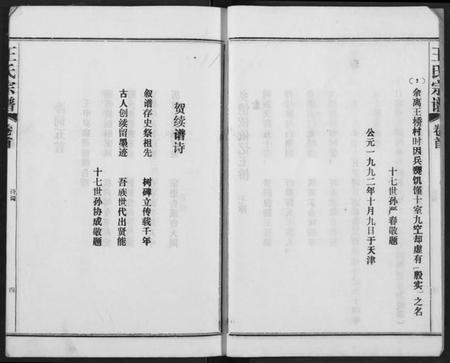 王氏宗谱
卷首
(1)余离王桥村时因兵燹饥馑十室九空却虚有殷实之名
十七世孙严春敬题
公元一九九二年十月九日于天津
贺续谱诗
叙谱存史祭祖先　树碑立传载千年
古人创续留墨迹　吾族世代出贤能
十七世孙协成敬题
王氏宗谱
卷首
诗词
四